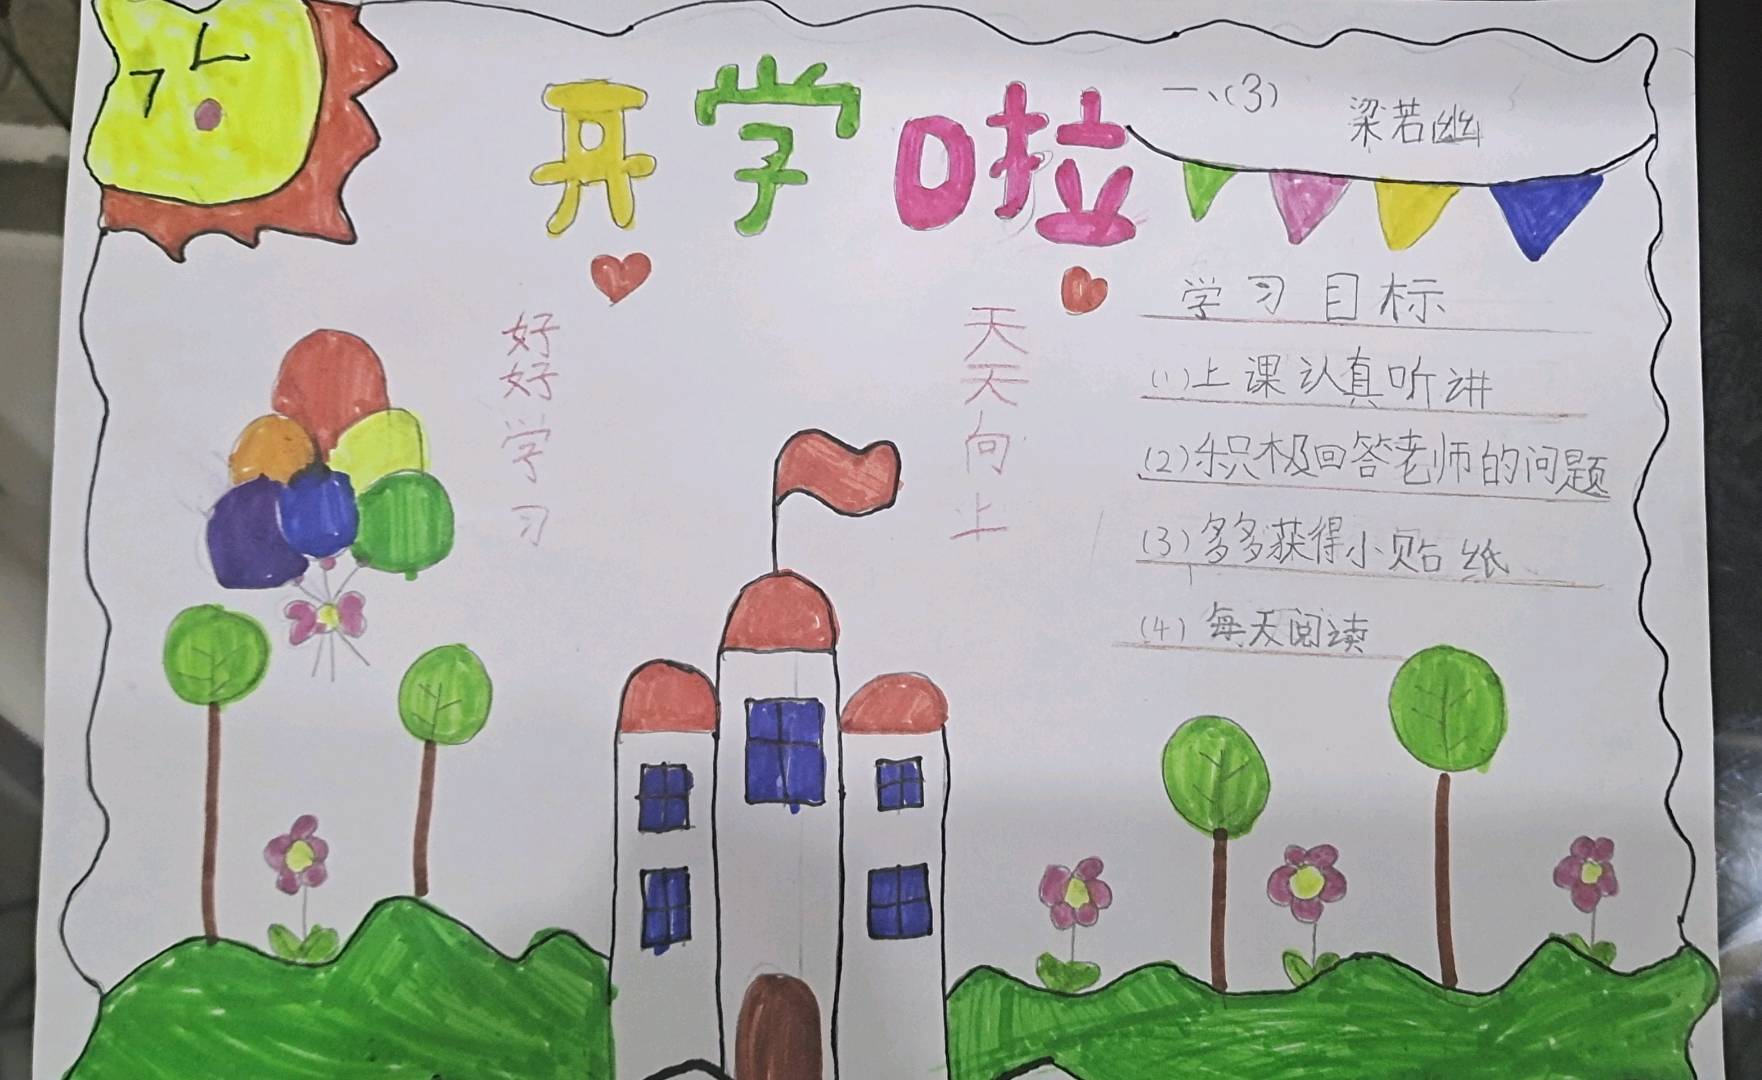 开学啦
一、(3)
梁若幽
好好学习
天天向上
学习目标
(1)上课认真听讲
(2)积极回答老师的问题
(3)多多获得小贴纸
(4)每天阅读